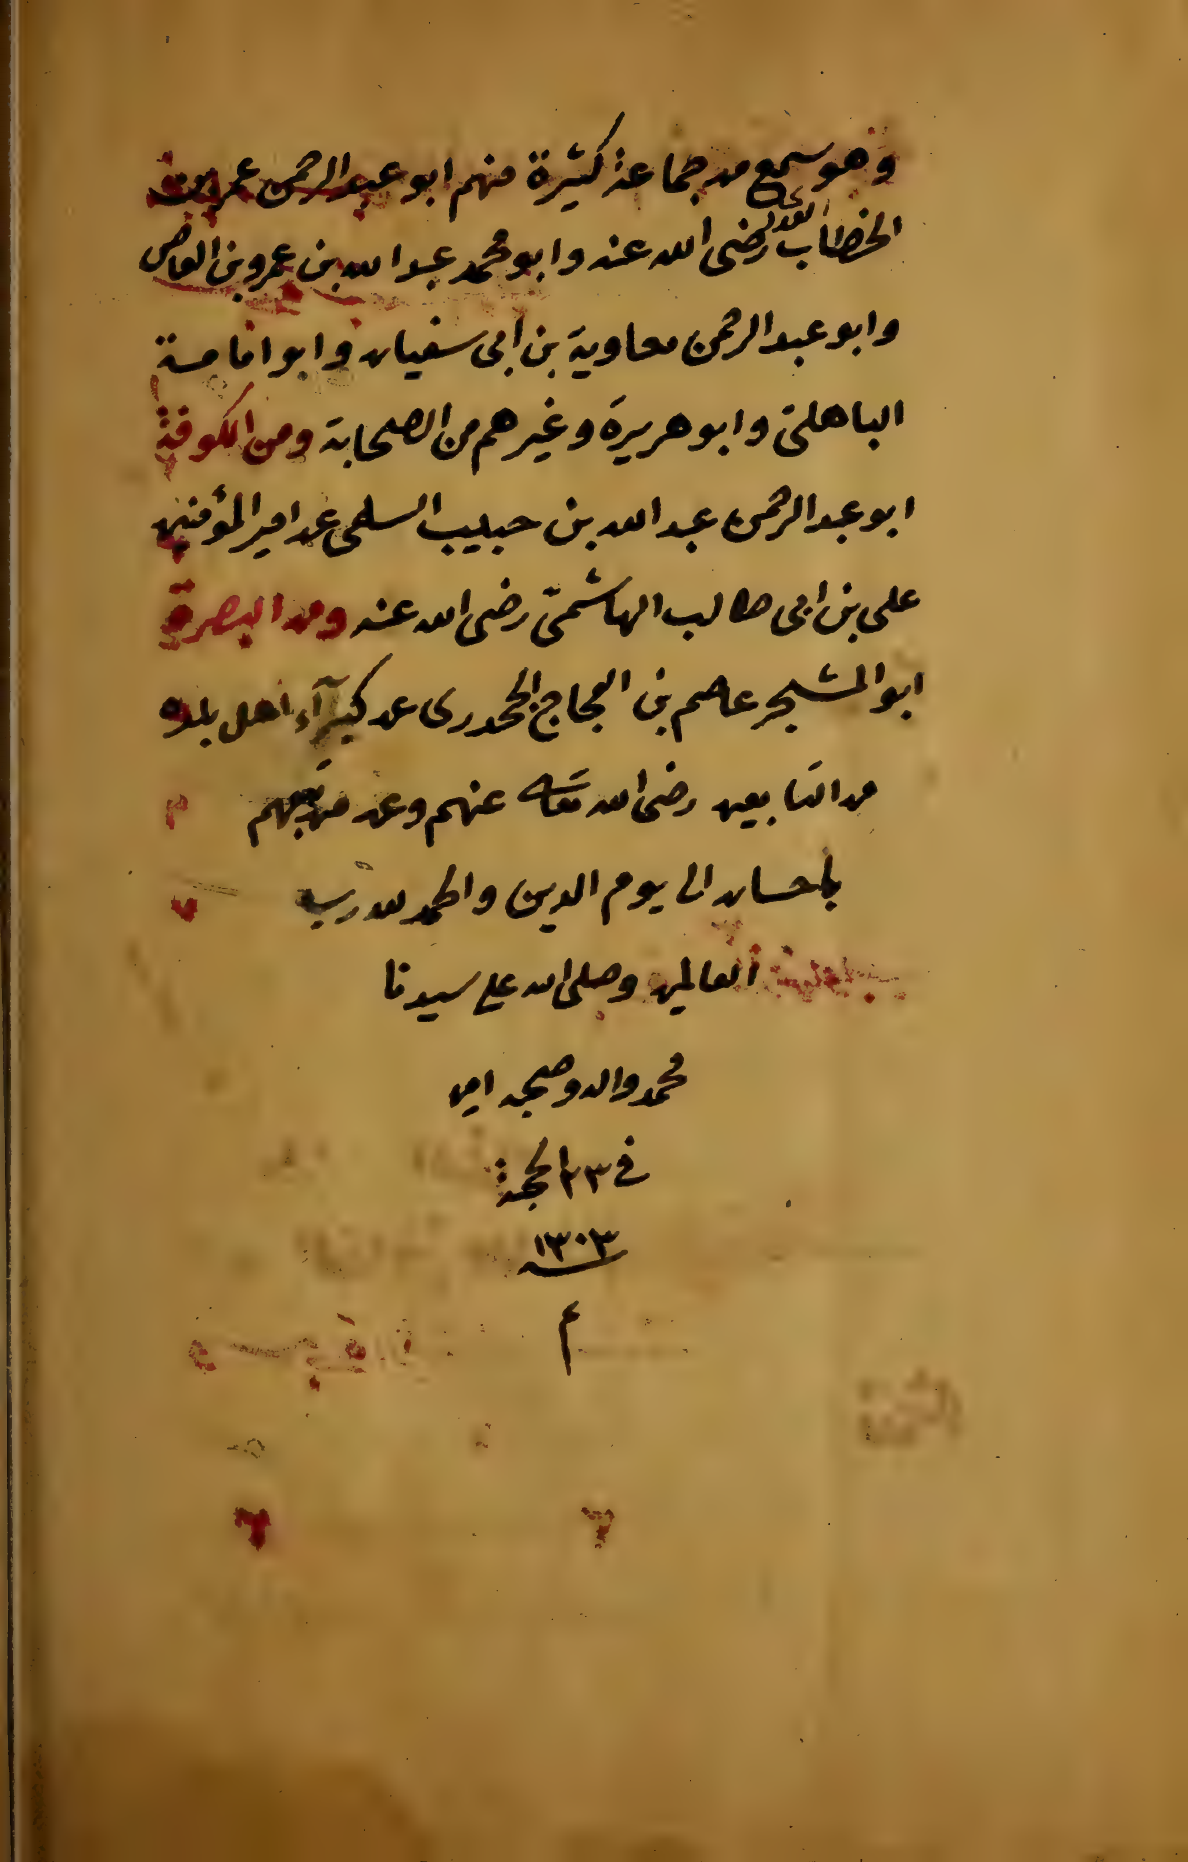 وهو سمع من جماعة كثيرة منهم ابو عبد الرحمن عمر بن
الخطاب رضى الله عنه وابو محمد عبد الله بن عمرو بن العاص
وابو عبد الرحمن معاوية بن ابى سفيان وابو امامة
الباهلىّ وابو هريرة وغيرهم من الصحابة ومن الكوفة
ابو عبد الرحمن عبد الله بن حبيب السلمى عن امير المؤمنين
على بن ابى طالب الهاشمىّ رضى الله عنه ومن البصرة
ابو المشجر عاصم بن العجاج الجحدرى عن كبرآء اهل بلده
من التابعين رضى الله تعالى عنهم وعن من تبعهم
باحسان الى يوم الدين والحمد لله رب
العالمين وصلى الله على سيدنا
محمد واله وصحبه امين
فى ٢٣ الحجة
سنة ١٣٠٣
م